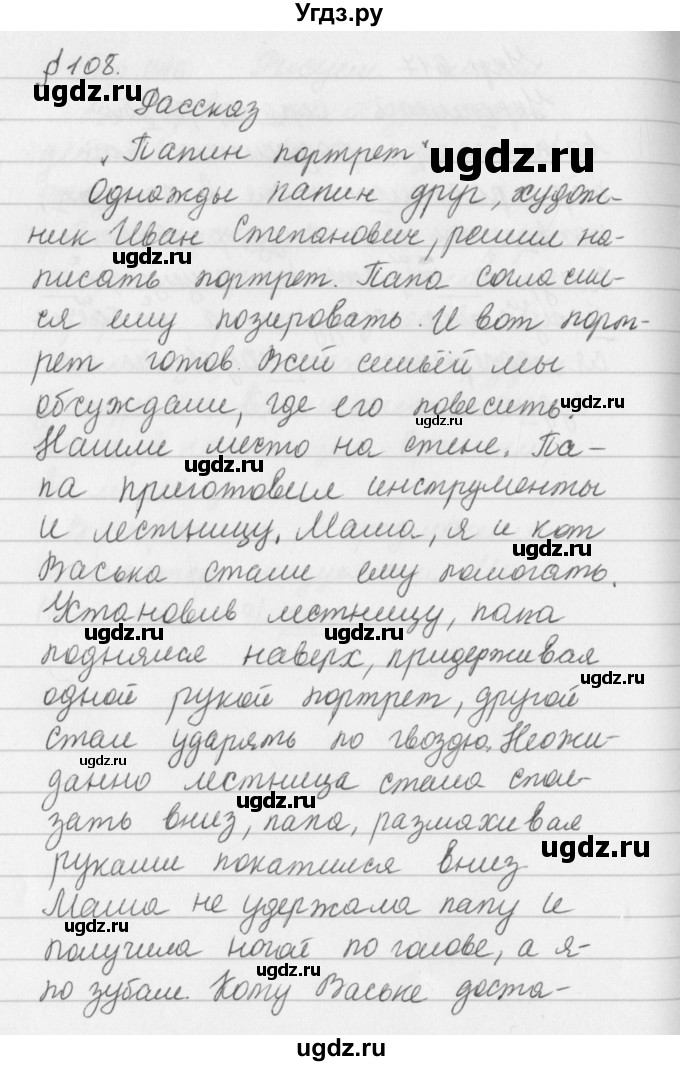 Угдз.ру
§ 108.
ugdz.ru
Рассказ
„Папин портрет“
ugdz.ru
Однажды папин друг, худож-
ник Иван Степанович, решил на-
ugdz.ru
писать портрет. Папа согласил-
ся ему позировать. И вот порт-
рет готов. Всей семьёй мы
обсуждали, где его повесить.
Нашли место на стене. Па-
ugdz.ru
па приготовил инструменты
и лестницу. Маша, я и кот
ugdz.ru
Васька стали ему помогать.
Установив лестницу, папа
ugdz.ru
ugdz.ru
поднялся наверх, придерживая
одной рукой портрет, другой
стал ударять по гвоздю. Неожи-
ugdz.ru
данно лестница стала спол-
ugdz.ru
зать вниз, папа, размахивая
ugdz.ru
руками покатился вниз
Маша не удержала папу и
ugdz.ru
получила ногой по голове, а я-
ugdz.ru
по зубам. Кому Ваське доста-
ugdz.ru
ugdz.ru